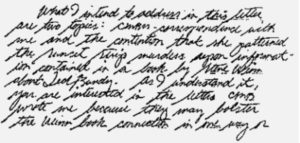 What I intend to address in this letter
are two topics: correspondence with
me and the contention that she patterned
the sunset strip murders upon informat-
ion contained in a book by
about Ted Bundy. As I understand it,
you are interested in the letters
wrote me because they may bolster
the book connection in one way or